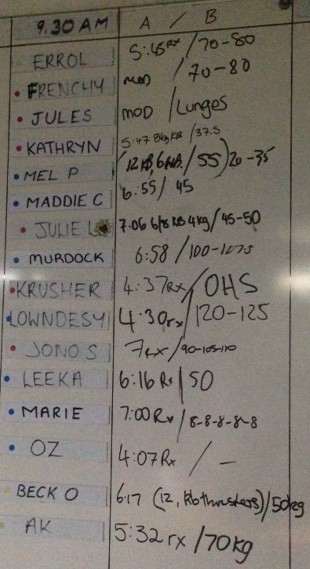 9.30 AM A / B
ERROL 5:45rx /70-80
FRENCHY MOD / 70-80
JULES MOD /Lunges
KATHRYN 5:47 8kgKB /37.5
MEL P (12KB, 6KB. / 55) 20-35
MADDIE C 6:55/ 45
JULIE L 7.06 6/8 KB 4kg / 45-50
MURDOCK 6:58 /100-107.5
KRUSHER 4:37Rx/ OHS
LOWNDESY 4:30rx/ 120-125
JONO S 7rx/90-105-110
LEEKA 6:16 Rx/50
MARIE 7:00 Rx/ 8-8-8-8-8
OZ 4:07Rx / -
BECK O 6:17 (12, kb thrusters)/50kg
AK 5:32 rx /70kg